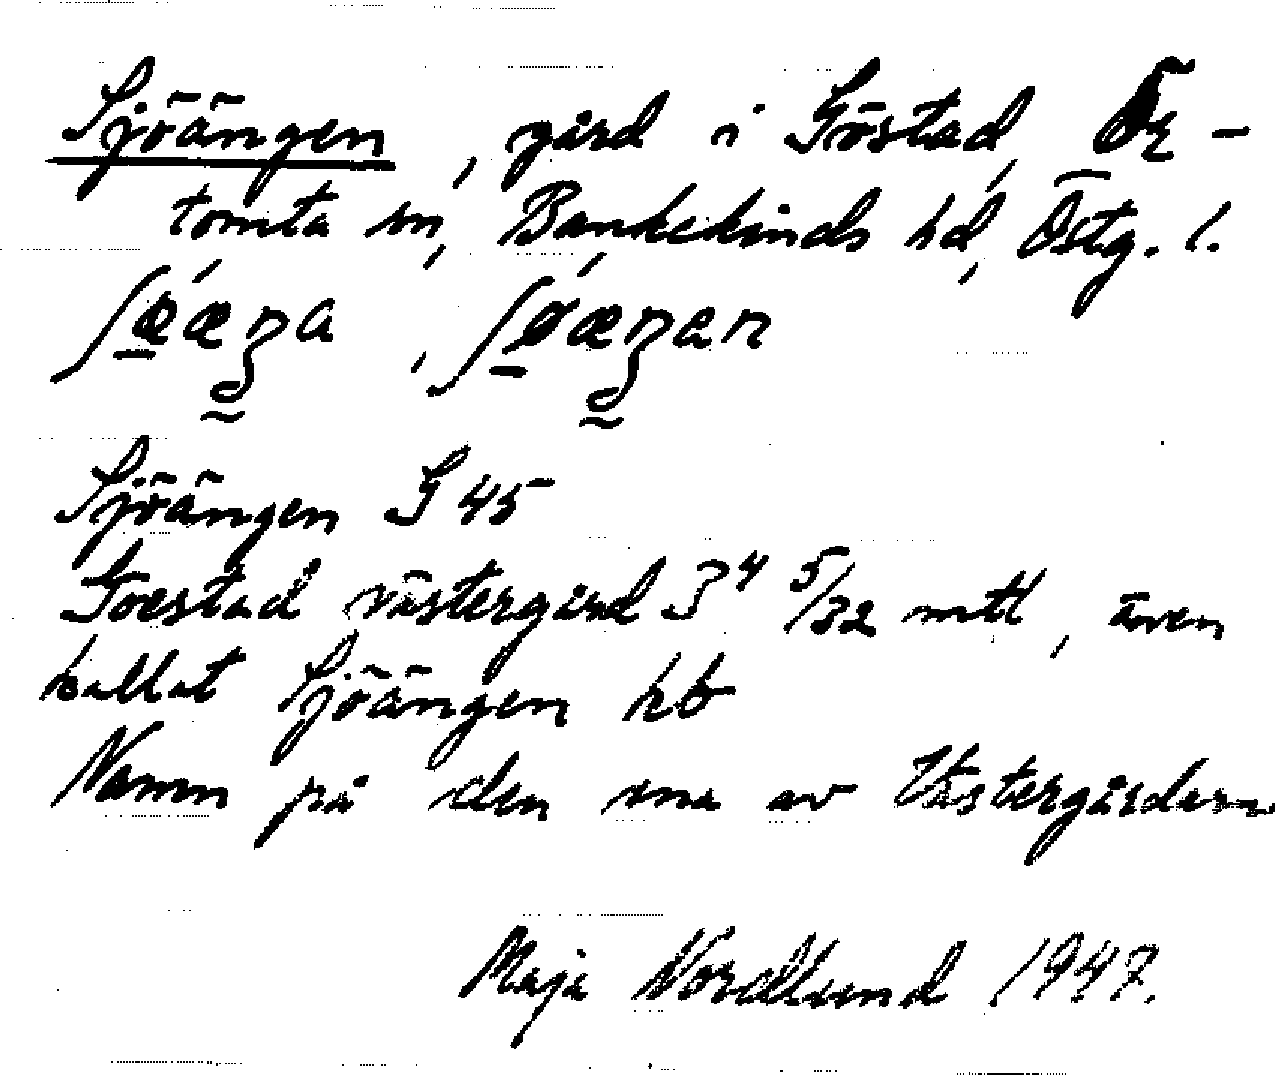 Sjöängen, gård i Göstad, Ör-
tomta sn, Bankekinds hd, Östg. l.
Sjöängen G 45
Goestad västergård 3⁴ 5/32 mtl, även
kallat Sjöängen hb
Namn på den ena av Västergårdarna
Maja Nordlund 1947.